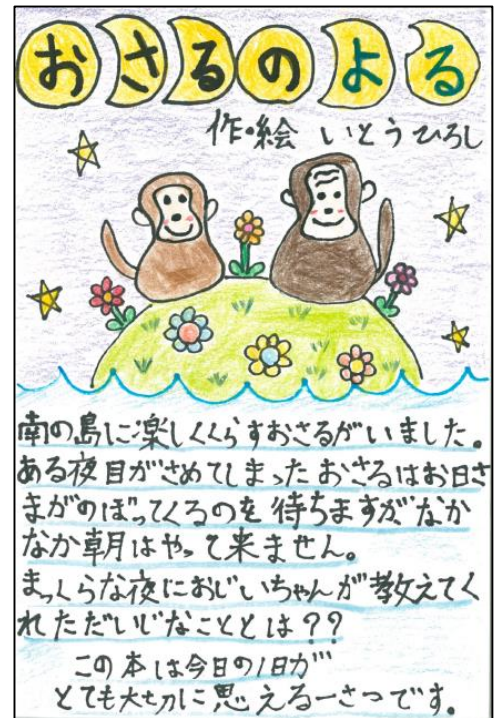 おさるのよる
作・絵 いとうひろし
南の島に楽しくくらすおさるがいました。
ある夜目がさめてしまったおさるはお日さ
まがのぼってくるのを待ちますがなか
なか朝はやって来ません。
まっくらな夜におじいちゃんが教えてく
れただいじなこととは??
この本は今日の1日が
とても大切に思える一さつです。